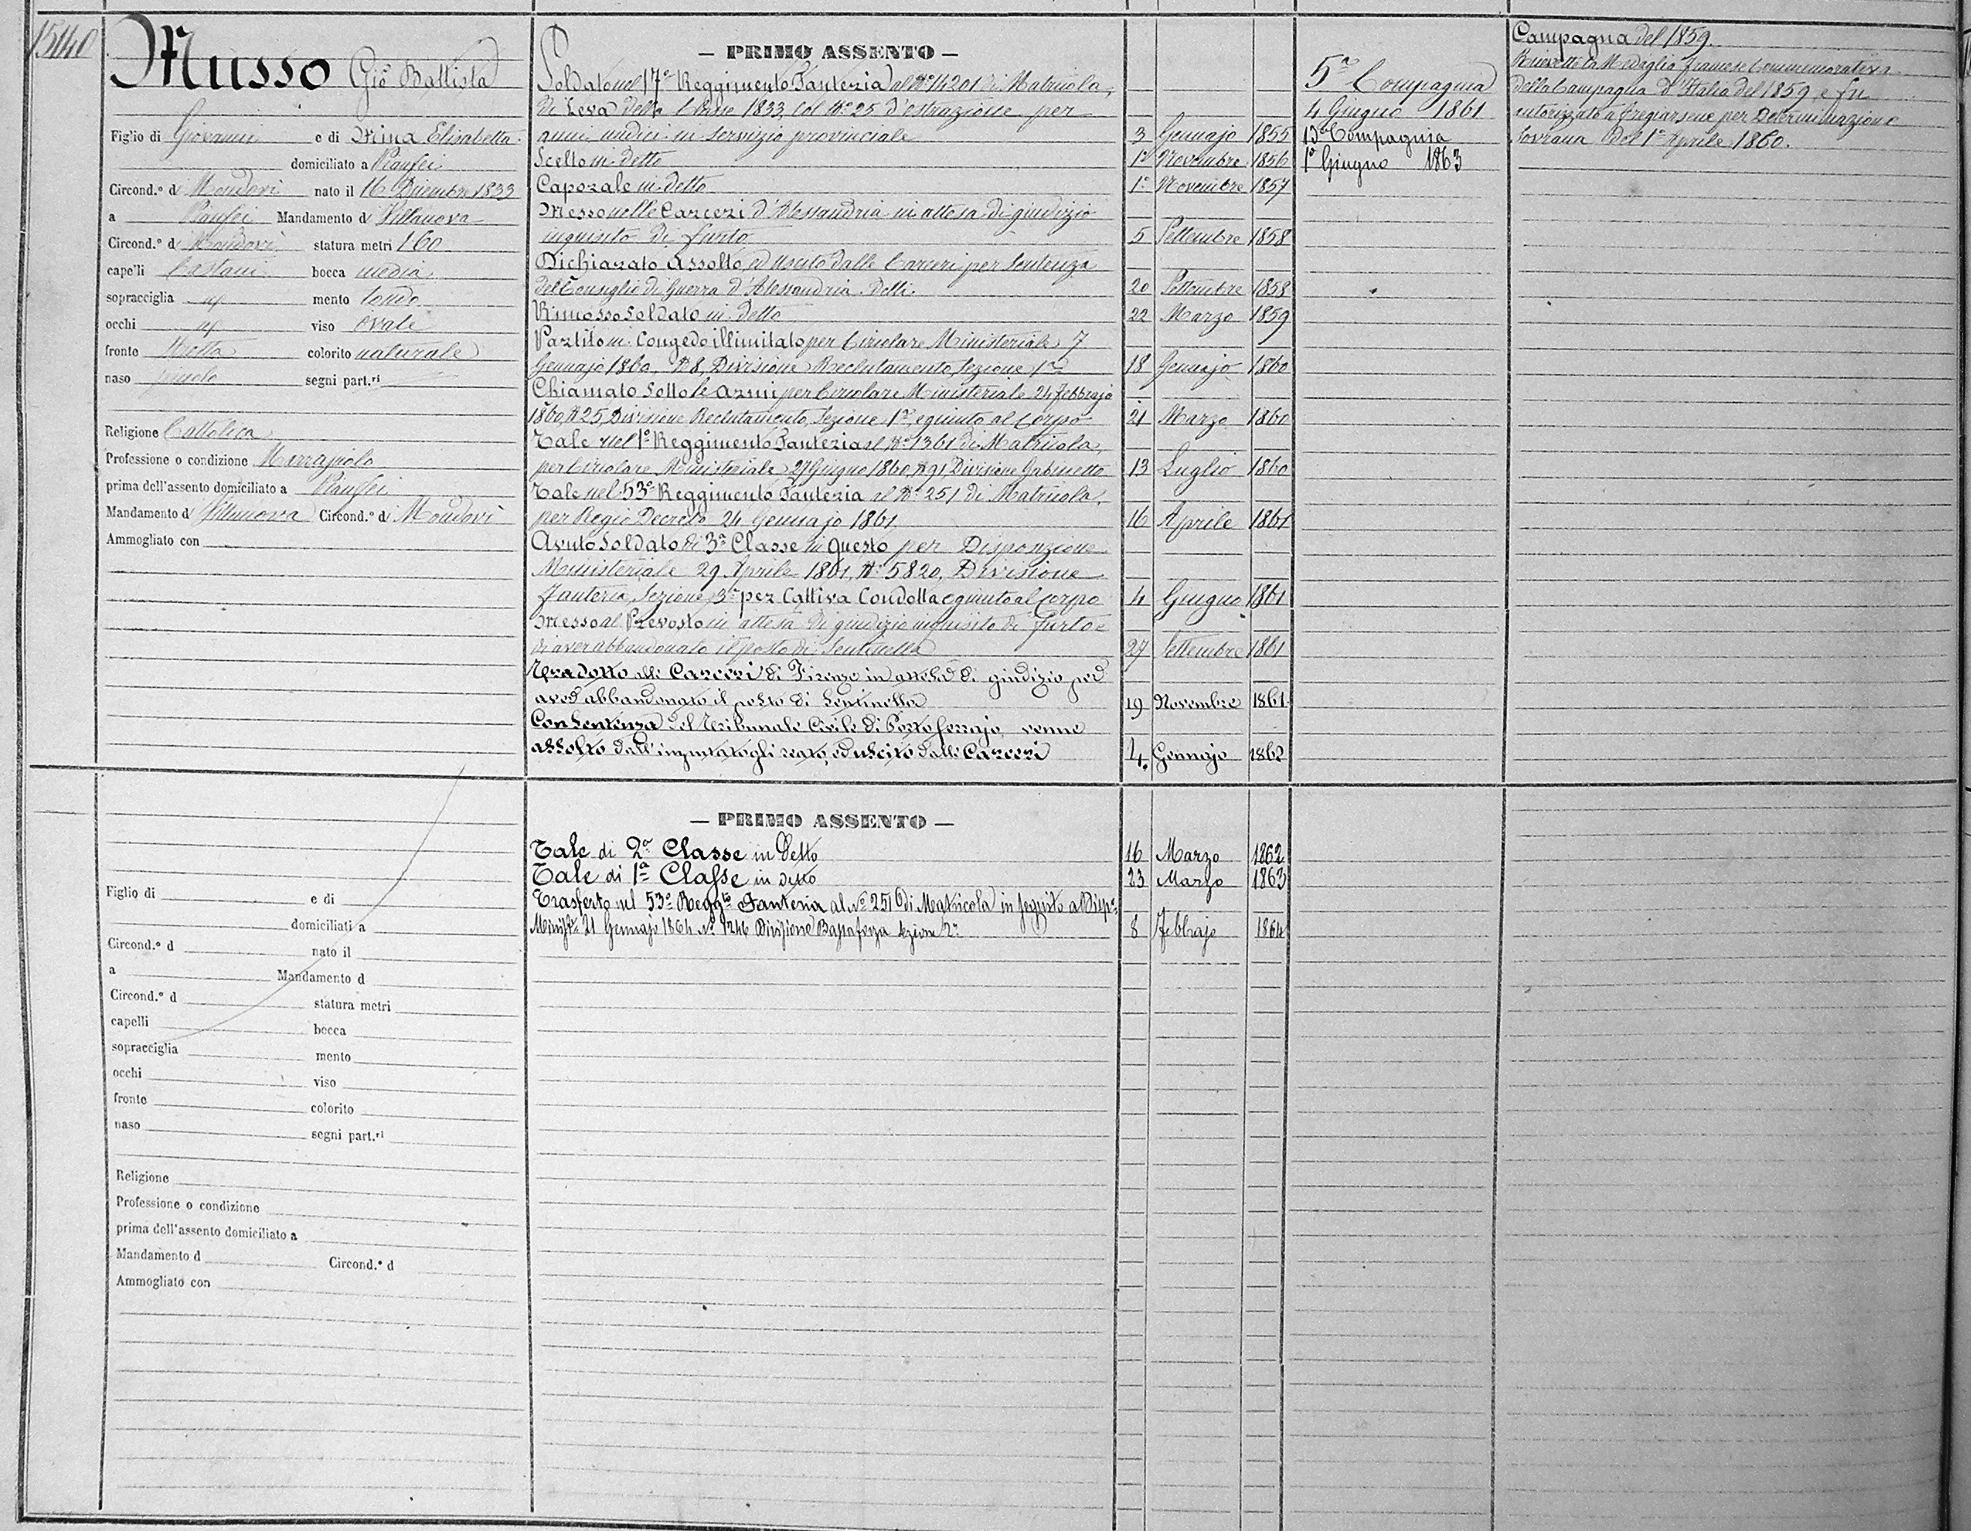 1540
Musso Gio Battista
Figlio di Giovanni e di Mina Elisabetta
domiciliato a Pianfei
Circond.º di Mondovì nato il 16 Dicembre 1833
a Pianfei Mandamento di Villanova
Circond.º di Mondovì statura metri 1.60
capelli Castani bocca media
sopracciglia id mento tondo
occhi id viso ovale
fronte stretta colorito naturale
naso piccolo segni part.ri
Religione Cattolica
Professione o condizione
prima dell'assento domiciliato a Pianfei
Mandamento di Villanova Circond.º di Mondovì
Ammogliato con
— PRIMO ASSENTO —
Soldato nel 17º Reggimento Fanteria al Nº 14201 di Matricola,
di Leva della Classe 1833, col Nº 25 d'estrazione per
anni undici in servizio provinciale 3 Gennajo 1855
Scelto in detto 1º Novembre 1856
Caporale in detto 1º Novembre 1857
Messo nelle Carceri d'Alessandria in attesa di giudizio
inquisito di furto 5 Settembre 1858
Dichiarato Assolto, ed uscito dalle Carceri per Sentenza
del Consiglio di Guerra d'Alessandria delli 20 Settembre 1858
Rimosso Soldato in detto 22 Marzo 1859
Partito in Congedo illimitato per Circolare Ministeriale 7
Gennajo 1860, Nº 8, Divisione Reclutamento, Sezione 1ª 18 Gennajo 1860
Chiamato sotto le armi per Circolare Ministeriale 24 Febbrajo
1860, Nº 25, Divisione Reclutamento, Sezione 1ª, e giunto al Corpo 21 Marzo 1860
Tale nel 1º Reggimento Fanteria al Nº 1361 di Matricola,
per Circolare Ministeriale 27 Giugno 1860, Nº 91 Divisione Gabinetto 13 Luglio 1860
Tale nel 53º Reggimento Fanteria al Nº 251 di Matricola,
per Regio Decreto 24 Gennajo 1861 16 Aprile 1861
Avuto Soldato di 3ª Classe in questo per Disposizione
Ministeriale 29 Aprile 1861, Nº 5820, Divisione
Fanteria, Sezione 3ª per Cattiva Condotta e giunto al Corpo 4 Giugno 1861
Messo al Prevosto in attesa di giudizio inquisito di furto e
di aver abbandonato il posto di Sentinella 27 Settembre 1861
Tradotto alle Carceri di Firenze in attesa di giudizio per
aver abbandonato il posto di Sentinella 19 Novembre 1861
Con Sentenza del Tribunale Civile di Porto ferrajo, venne
assolto dall'imputatogli reato, ed uscito dalle Carceri 4 Gennajo 1862
5ª Compagnia
4 Giugno 1861
13ª Compagnia
1º Giugno 1863
Campagna del 1859.
Ricevette la Medaglia francese Commemorativa
della Campagna d'Italia del 1859, e fu
autorizzato a fregiarsene per Determinazione
Sovrana del 1º Aprile 1860.
— PRIMO ASSENTO —
Tale di 2ª Classe in Detto 16 Marzo 1862
Tale di 1ª Classe in detto 23 Marzo 1863
Trasferto nel 53º Reggto Fanteria al Nº 2516 di Matricola in seguito a Dispe
Minist.le 21 Gennajo 1864 Nº 1246 Divisione Bassaforza Sezione 2ª 8 Febbrajo 1864
Figlio di e di
domiciliati a
Circond.º d nato il
a Mandamento d
Circond.º d statura metri
capelli bocca
sopracciglia mento
occhi viso
fronte colorito
naso segni part.ri
Religione
Professione o condizione
prima dell'assento domiciliato a
Mandamento d Circond.º d
Ammogliato con